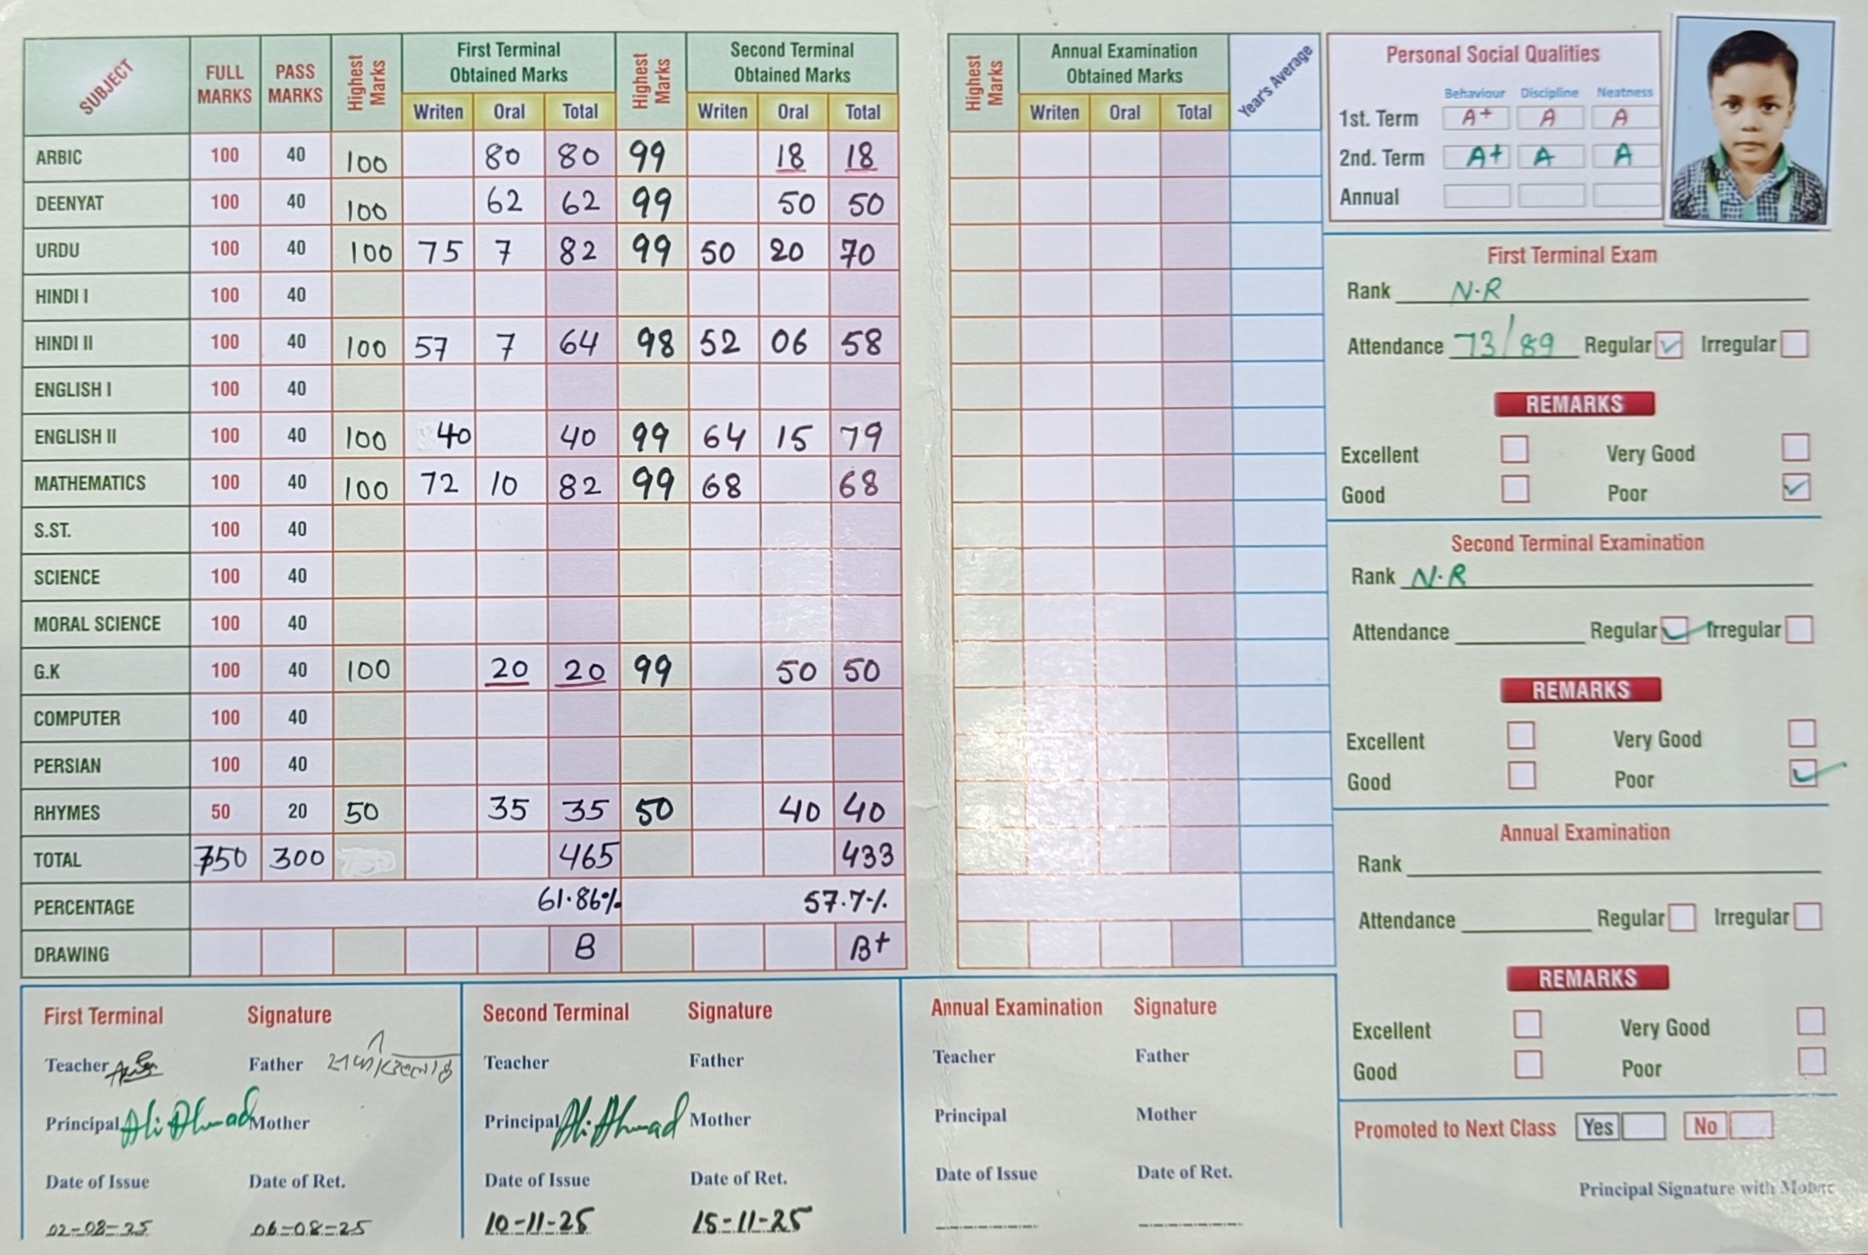 SUBJECT FULL MARKS PASS MARKS Highest Marks First Terminal Obtained Marks Highest Marks Second Terminal Obtained Marks
Writen Oral Total Writen Oral Total
ARBIC 100 40 100 80 80 99 18 18
DEENYAT 100 40 100 62 62 99 50 50
URDU 100 40 100 75 7 82 99 50 20 70
HINDI I 100 40
HINDI II 100 40 100 57 7 64 98 52 06 58
ENGLISH I 100 40
ENGLISH II 100 40 100 40 40 99 64 15 79
MATHEMATICS 100 40 100 72 10 82 99 68 68
S.ST. 100 40
SCIENCE 100 40
MORAL SCIENCE 100 40
G.K 100 40 100 20 20 99 50 50
COMPUTER 100 40
PERSIAN 100 40
RHYMES 50 20 50 35 35 50 40 40
TOTAL 750 300 465 433
PERCENTAGE 61.86% 57.7%
DRAWING B B+
First Terminal Signature
Teacher Father
Principal Ali Ahmad Mother
Date of Issue Date of Ret.
02-08-25 06-08-25
Second Terminal Signature
Teacher Father
Principal Ali Ahmad Mother
Date of Issue Date of Ret.
10-11-25 15-11-25
Highest Marks Annual Examination Obtained Marks Year's Average
Writen Oral Total
Annual Examination Signature
Teacher Father
Principal Mother
Date of Issue Date of Ret.
Personal Social Qualities
Behaviour Discipline Neatness
1st. Term A+ A A
2nd. Term A+ A A
Annual
First Terminal Exam
Rank N.R
Attendance 73/89 Regular Irregular
REMARKS
Excellent Very Good
Good Poor
Second Terminal Examination
Rank N.R
Attendance Regular Irregular
REMARKS
Excellent Very Good
Good Poor
Annual Examination
Rank
Attendance Regular Irregular
REMARKS
Excellent Very Good
Good Poor
Promoted to Next Class Yes No
Principal Signature with